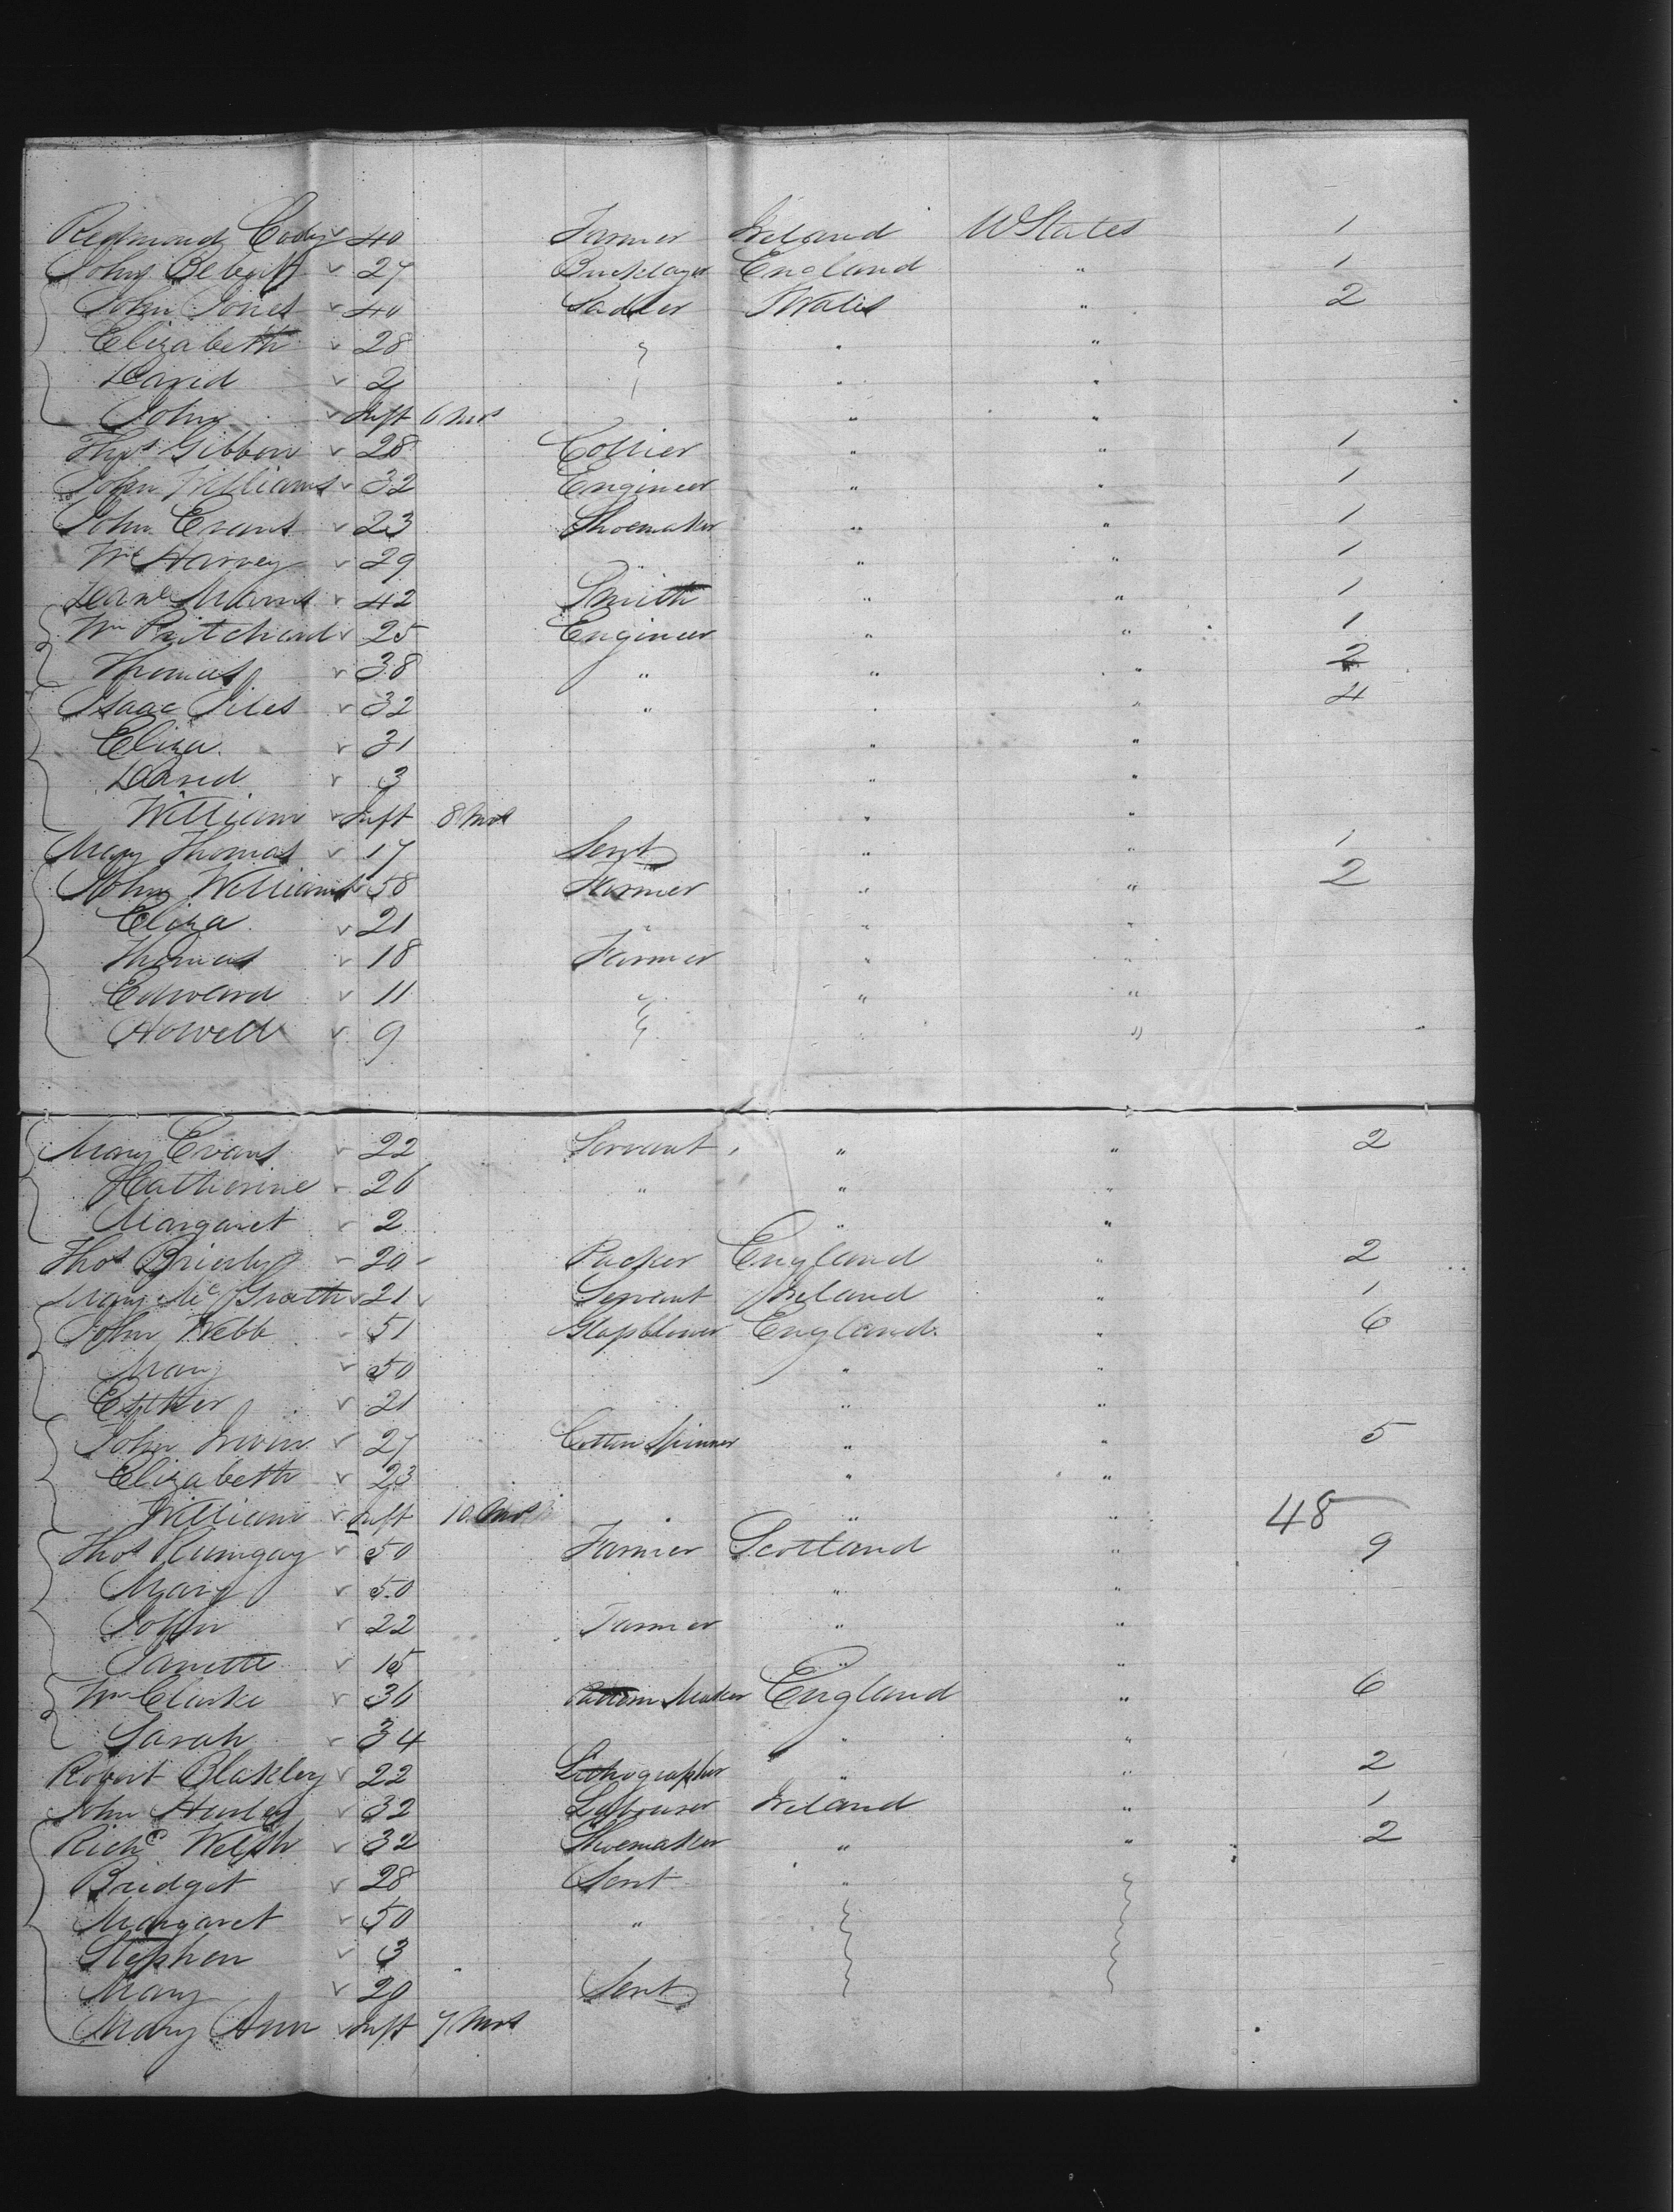 Redmond Cody 40 Farmer Ireland U States 1
John 27 Bricklayer England " 1
John Jones 40 Sadler Wales " 2
Elizabeth 28 " "
David 2 " "
John Inft 6 Mos " "
Thos Gibbon 28 Collier " " 1
John Williams 32 Engineer " " 1
John Evans 23 Shoemaker " " 1
Wm Harvey 29 " " 1
42 Smith " " 1
Wm Pritchard 25 Engineer " " 1
Thomas 38 " " " 2
Isaac Giles 32 " " " 4
Eliza 31 " "
David 3 " "
William Inft 8 Mos " "
Mary Thomas 17 Servt " " 1
John Williams 58 Farmer " " 2
Eliza 21 " " "
Thomas 18 Farmer " "
Edward 11 " " "
Howell 9 " "
Mary Evans 22 Servant " " 2
Catherine 26 " " "
Margaret 2 " "
Thos Brierly 20 Packer England " 2
Mary Mc Grath 21 Servant Ireland " 1
John Webb 51 Glassblower England " 6
Mary 50 " "
Esther 21 " "
John Irwin 27 Cotton Spinner " " 5
Elizabeth 23 " "
William Inft 10 Mos " " 48
Thos Rumgay 50 Farmer Scotland " 9
Mary 50 " "
John 22 Farmer " "
Janette 15 " "
Wm Clarke 36 Pattern Maker England " 6
Sarah 34 " "
Robert Blakley 22 Lithographer " " 2
John Hurley 32 Labourer Ireland " 1
Richd Welsh 32 Shoemaker " " 2
Bridget 28 Servt "
Margaret 50 "
Stephen 3
Mary 20 Servt
Mary Ann Inft 7 Mos